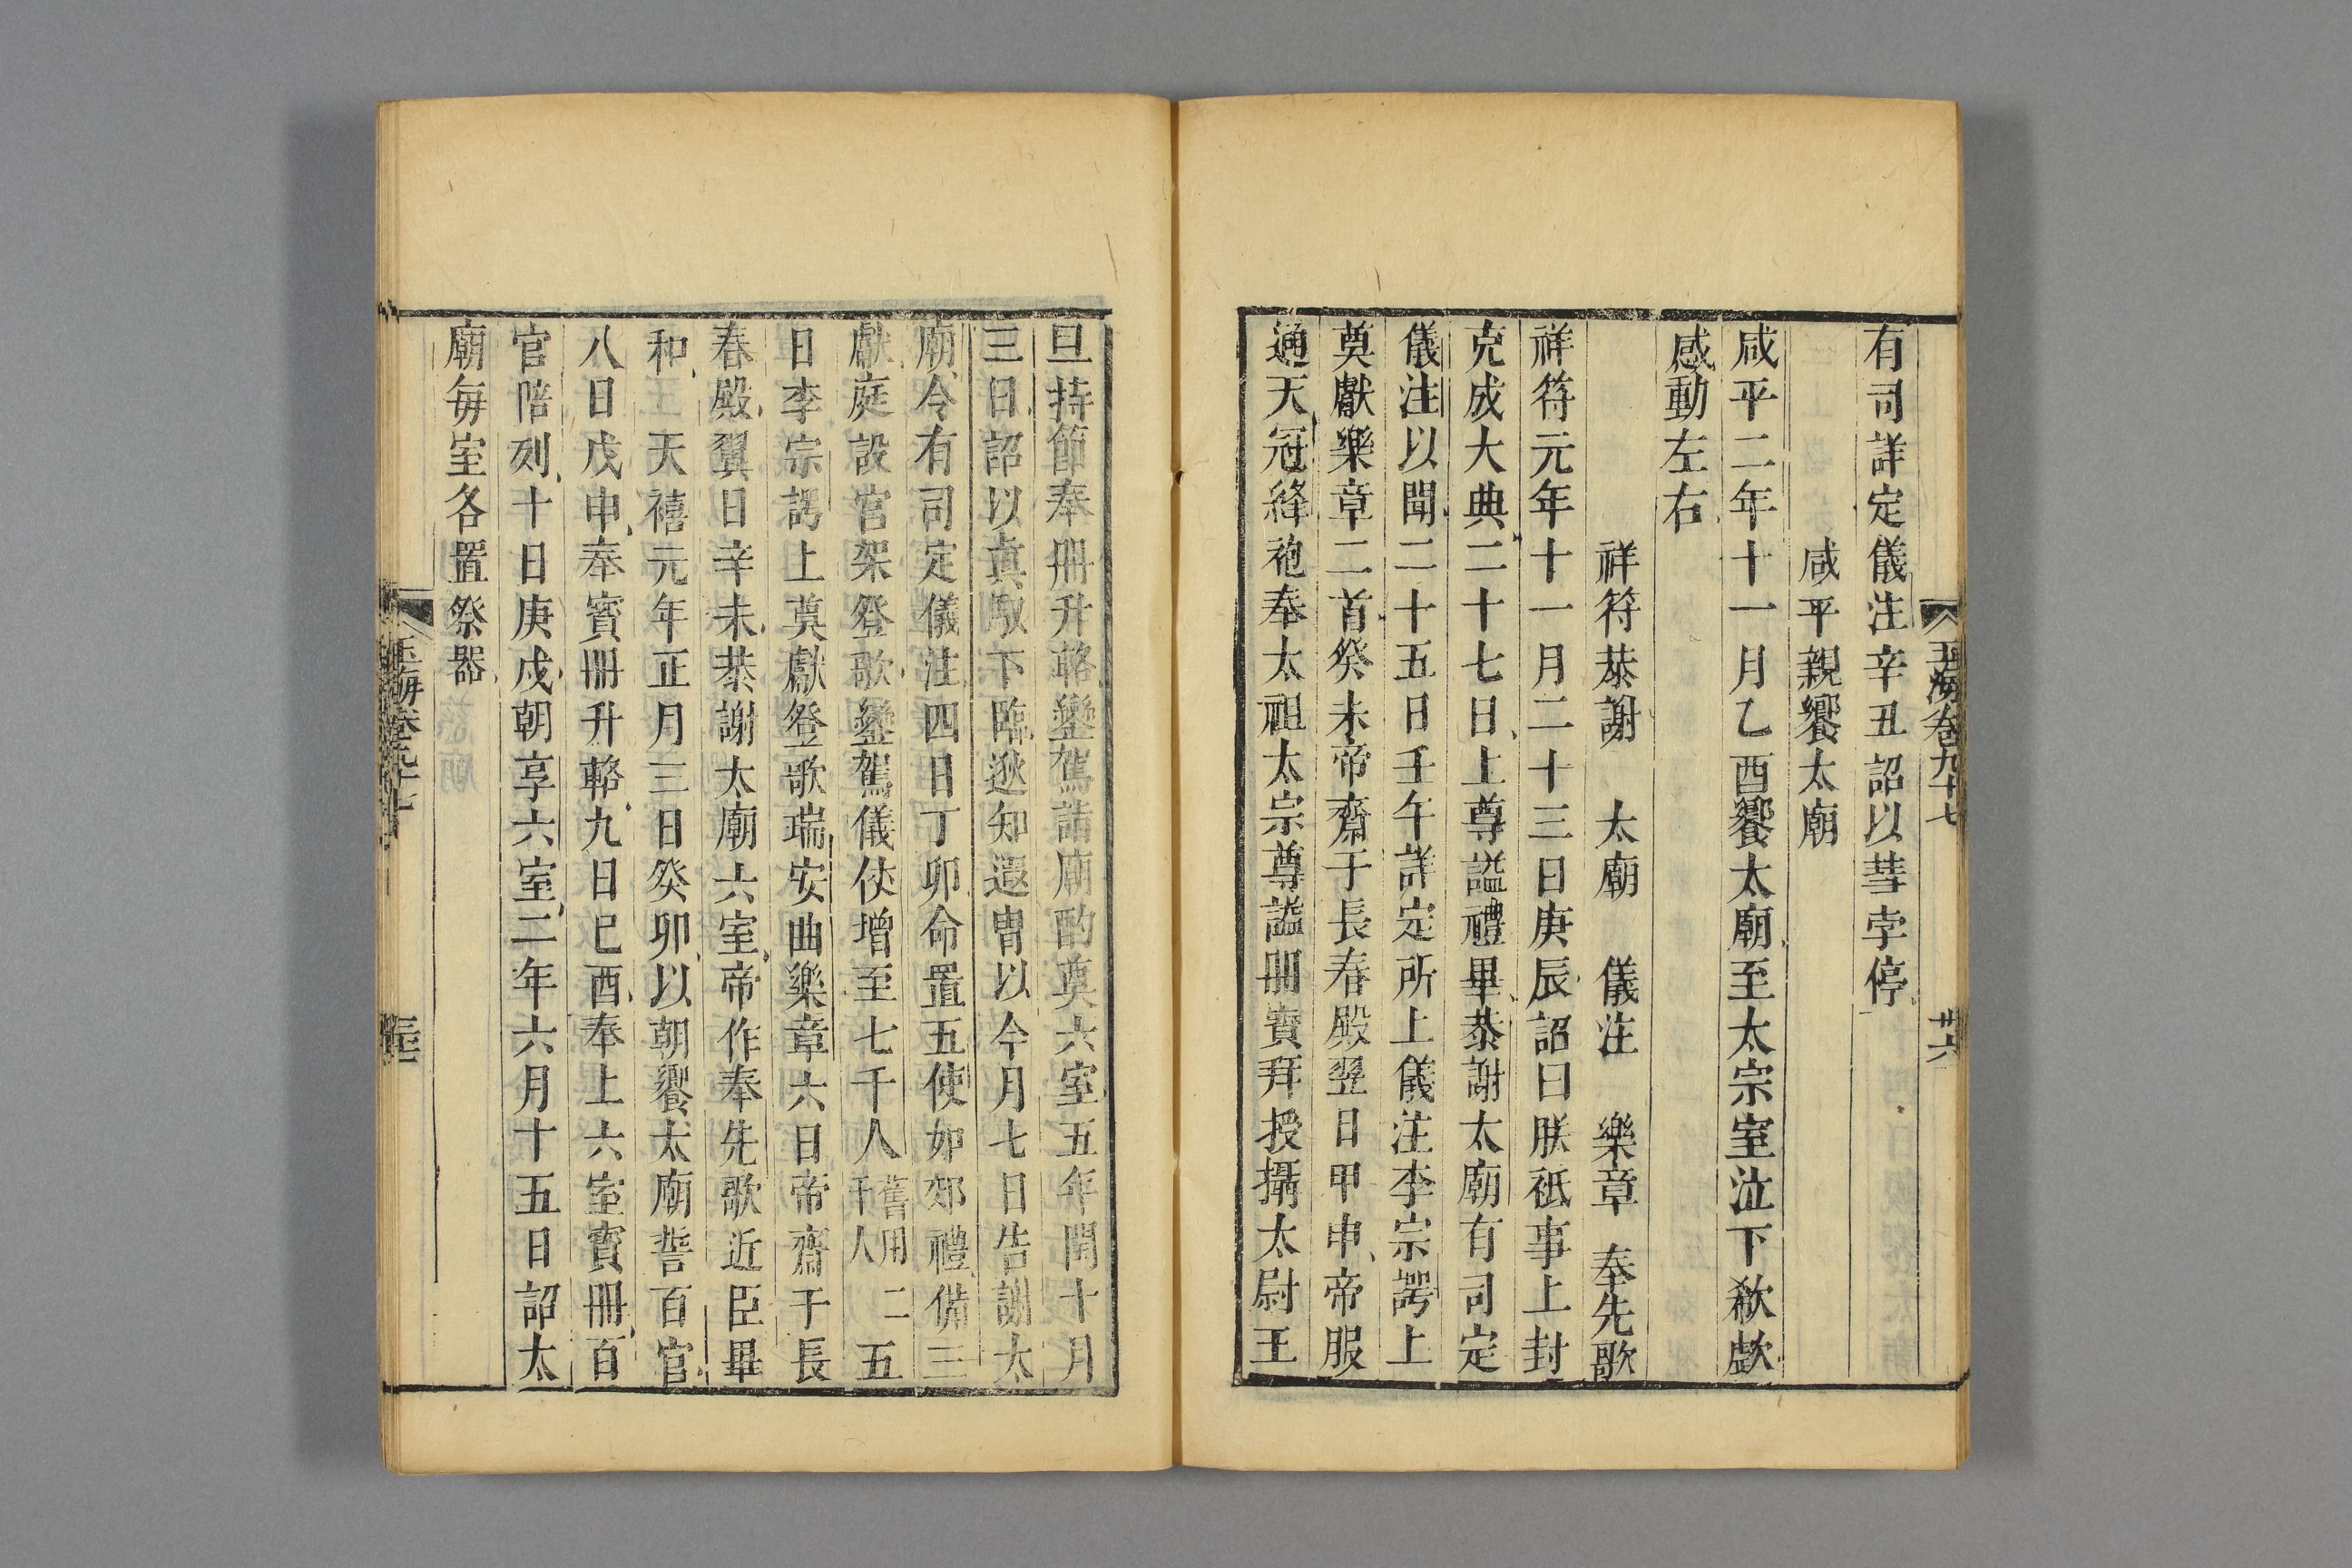 玉海卷九十七
廿六
有司詳定儀注辛丑詔以彗孛停
咸平親饗太廟
咸平二年十一月乙酉饗太廟至太宗室泣下欷歔
感動左右
祥符恭謝 太廟 儀注 樂章 奉先歌
祥符元年十一月二十三日庚辰詔曰朕祗事上封
克成大典二十七日上尊謚禮畢恭謝太廟有司定
儀注以聞二十五日壬午詳定所上儀注李宗諤上
奠獻樂章二首癸未帝齋于長春殿翌日甲申帝服
通天冠絳袍奉太祖太宗尊謚冊寶拜授攝太尉王
旦持節奉冊升輅鑾駕詣廟酌奠六室五年閏十月
三日詔以真馭下臨逖知遐胄以今月七日告謝太
廟令有司定儀注四日丁卯命置五使如郊禮備三
獻庭設宮架登歌鑾駕儀仗增至七千人舊用二千人五
日李宗諤上奠獻登歌瑞安曲樂章六日帝齋于長
春殿翼日辛未恭謝太廟六室帝作奉先歌近臣畢
和天禧元年正月三日癸卯以朝饗太廟誓百官
八日戊申奉寳冊升輅九日己酉奉上六室寳冊百
官陪列十日庚戌朝享六室二年六月十五日詔太
廟每室各置祭器
玉海卷九十七